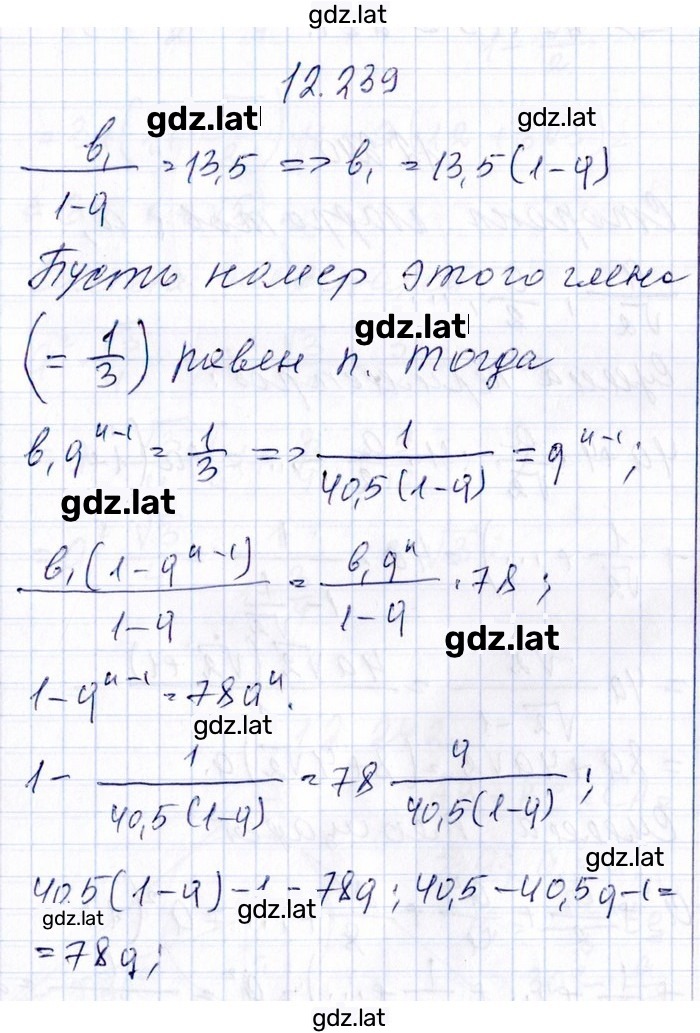 gdz.lat
12.239
gdz.lat
gdz.lat
b₁/(1-q) = 13,5 => b₁ = 13,5(1-q)
Пусть номер этого члена
gdz.lat
(= 1/3) равен n. Тогда
b₁q^(n-1) = 1/3 => 1/(40,5(1-q)) = q^(n-1);
gdz.lat
b₁(1-q^(n-1))/(1-q) = b₁q^n/(1-q) · 78;
gdz.lat
1-q^(n-1) = 78q^n.
gdz.lat
1 - 1/(40,5(1-q)) = 78 q/(40,5(1-q));
gdz.lat
40.5(1-q)-1 = 78q; 40,5-40,5q-1=
gdz.lat
gdz.lat
= 78q;
gdz.lat